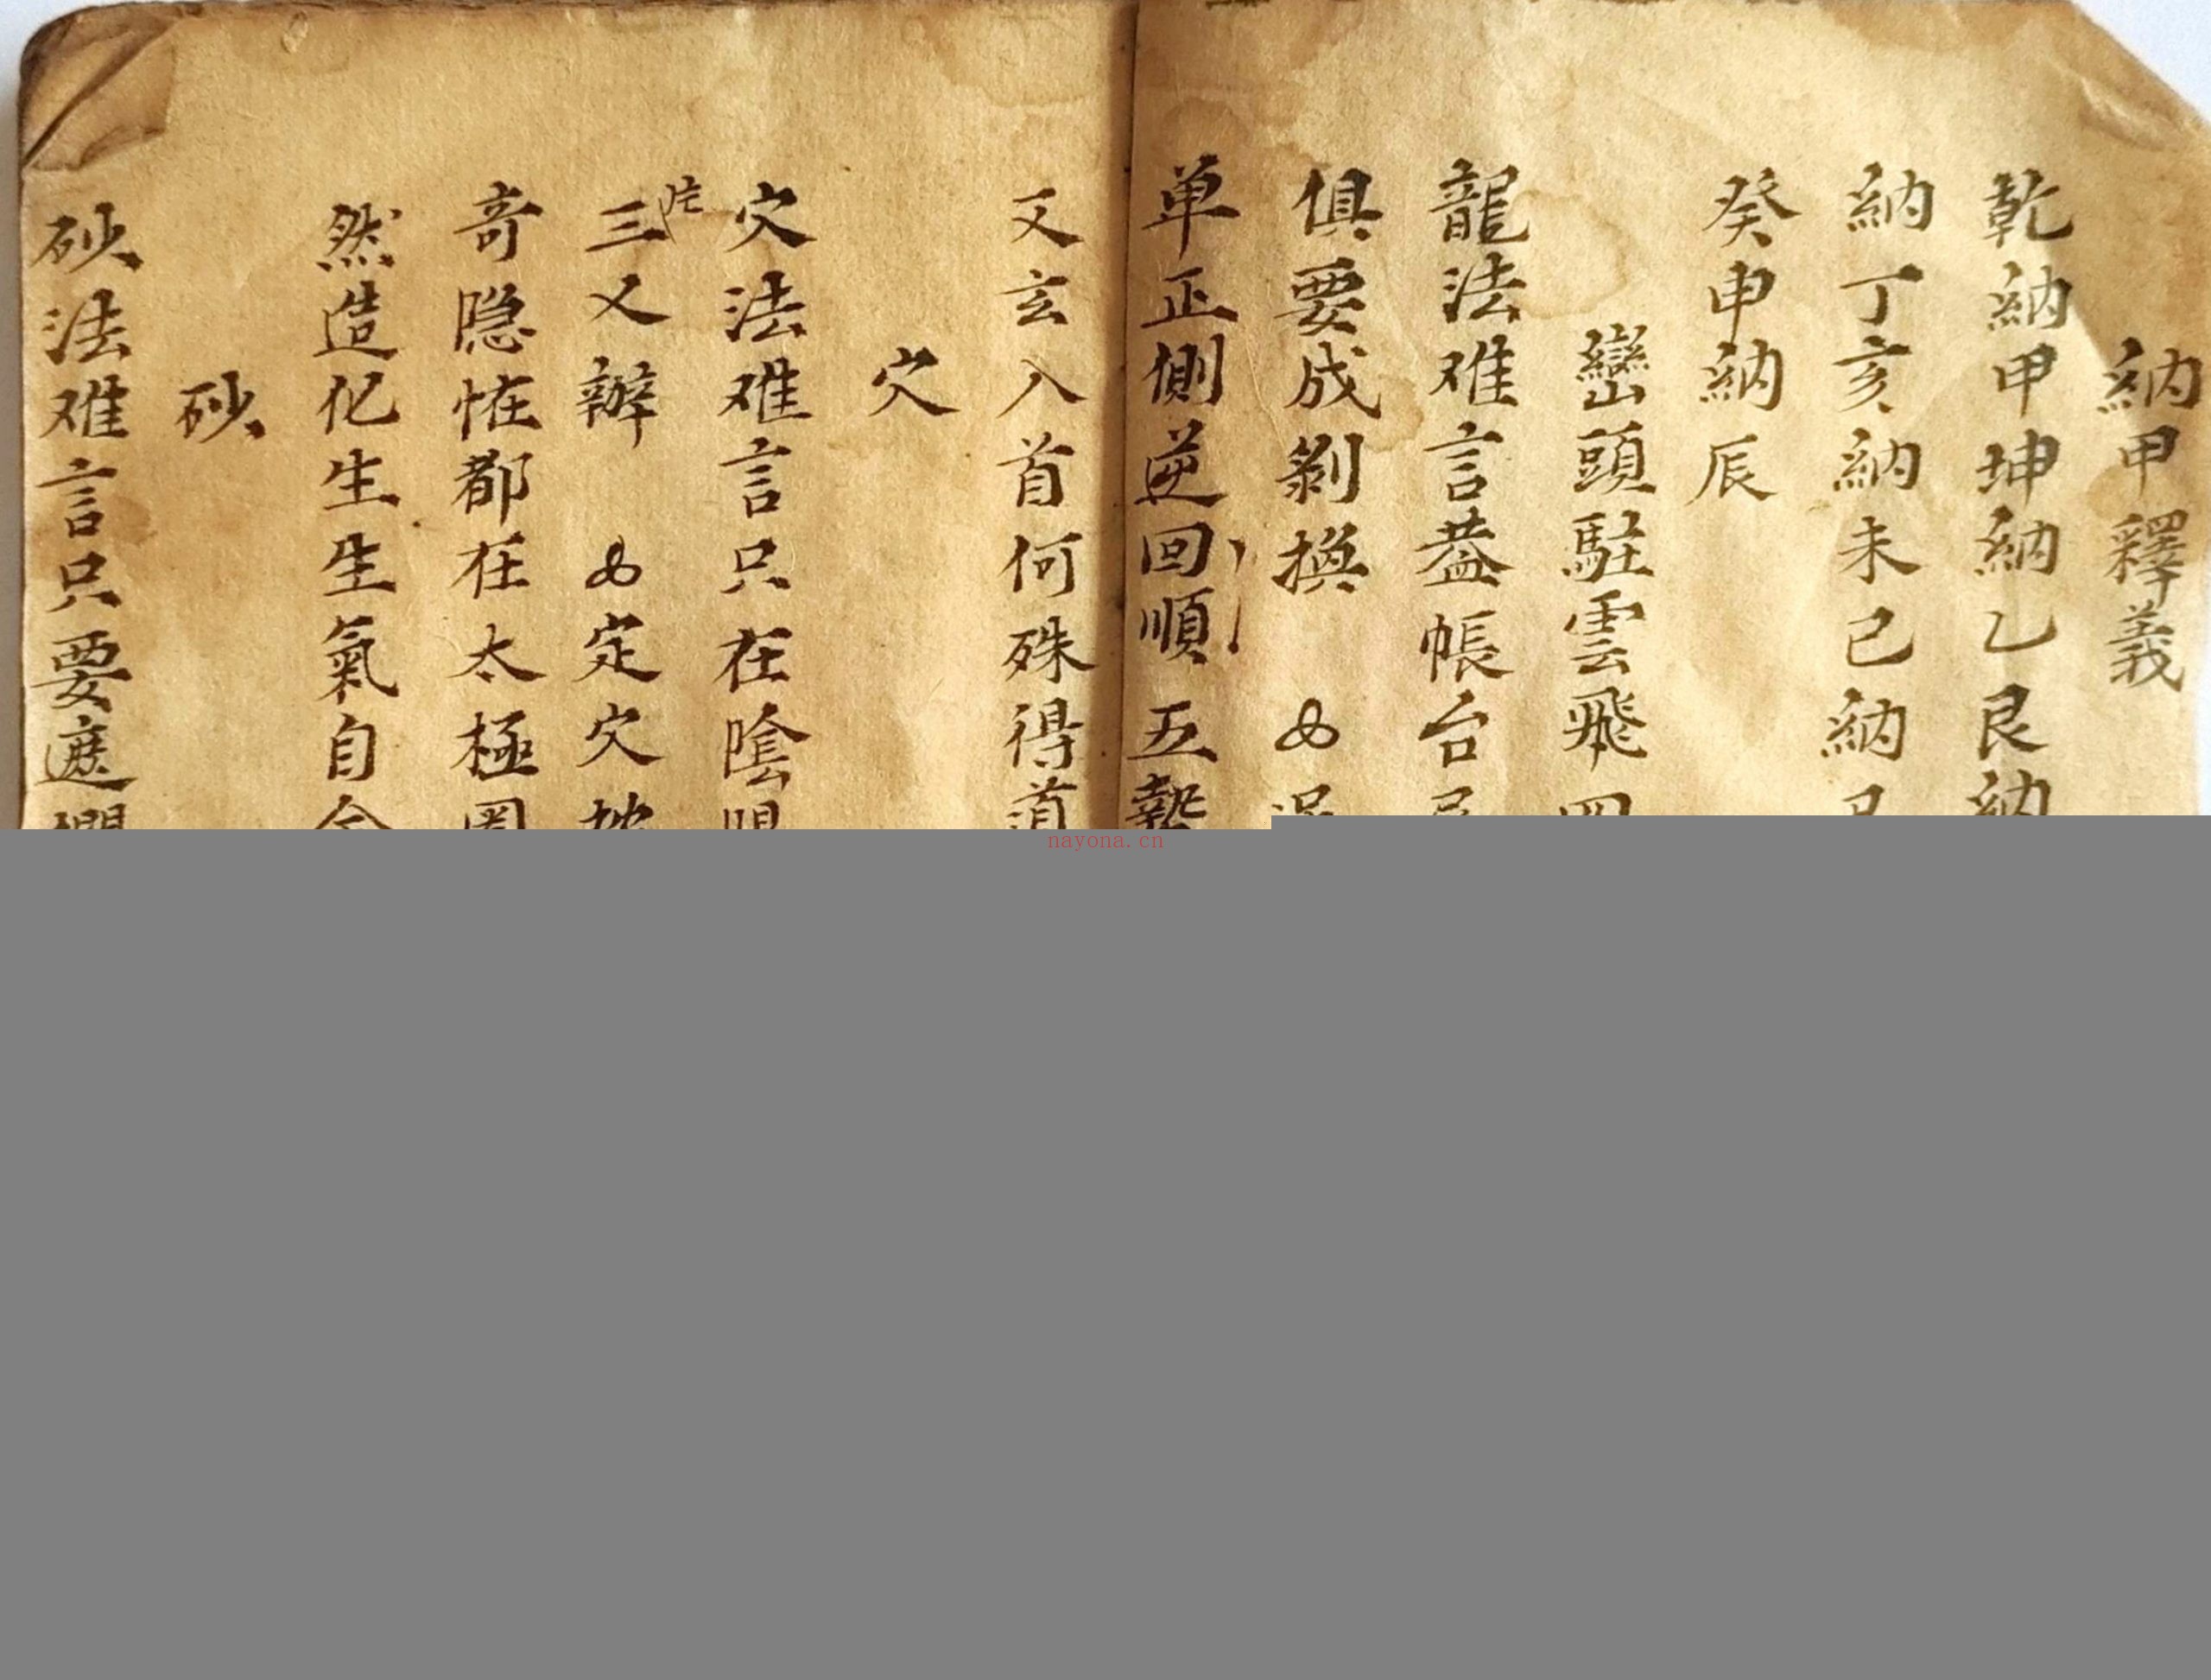 納甲釋義
乾納甲坤納乙艮納
納丁亥納未巳納
癸申納辰
巒頭駐雲飛
龍法难言蓋帳台
俱要成剝換
单正側逆回順五
又玄入首何殊得
穴
穴法难言只在陰
三义辦 定穴
奇隐恠都在太極
然造化生生氣自
砂
砂法难言只要遮
nayona.cn